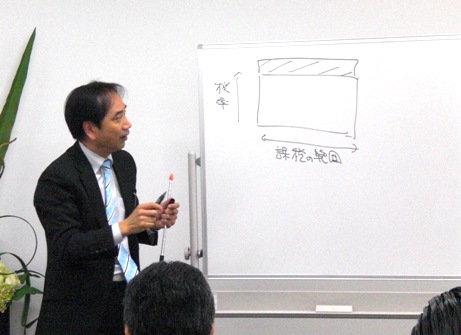 税率
課税の範囲